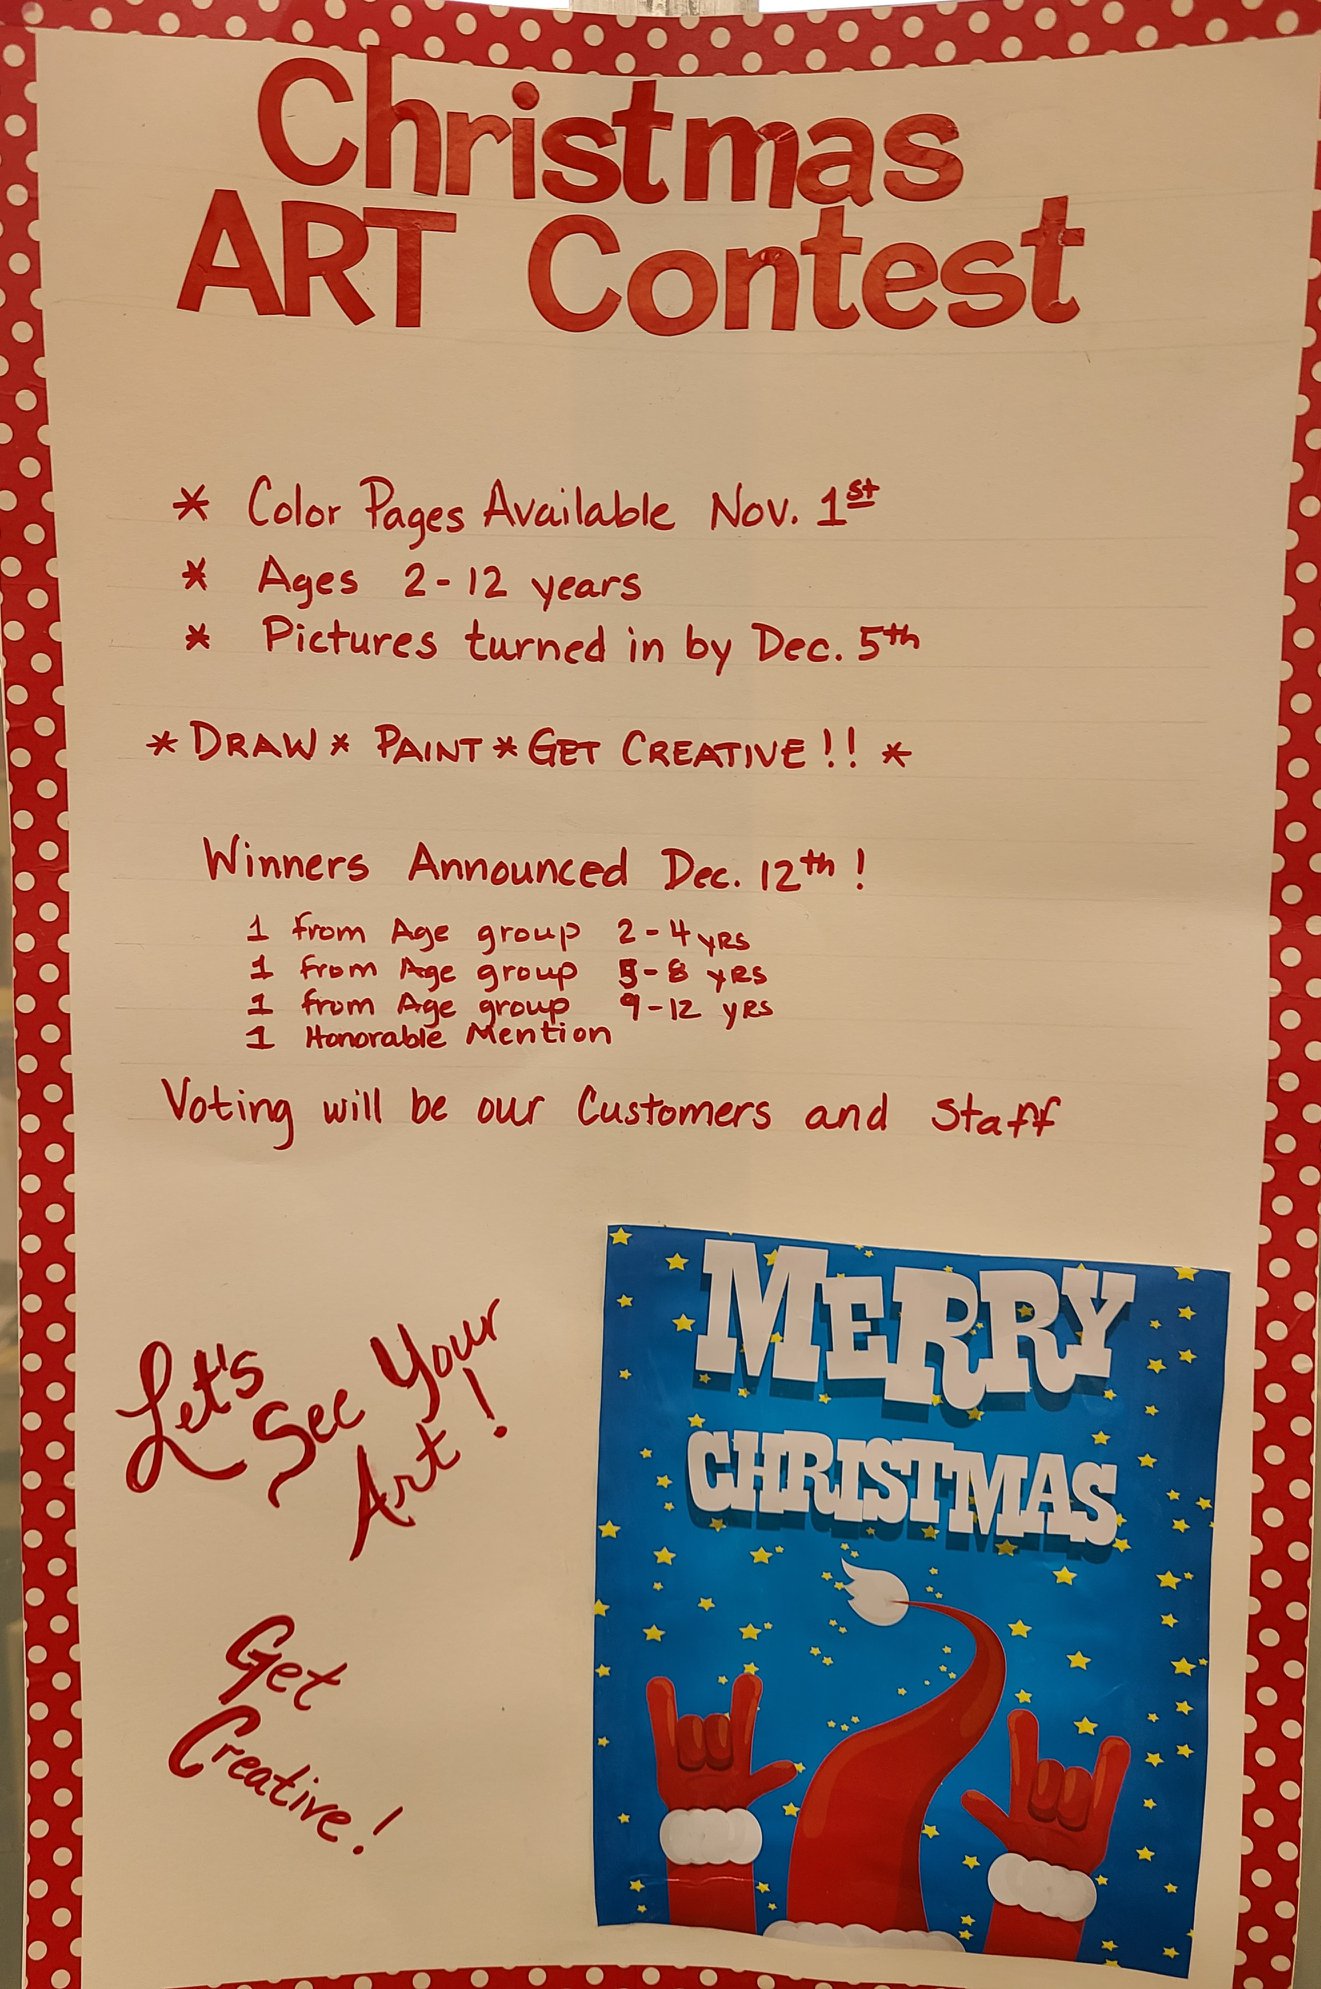 Christmas
ART Contest
* Color Pages Available Nov. 1st
* Ages 2-12 years
* Pictures turned in by Dec. 5th
* DRAW * PAINT * GET CREATIVE!! *
Winners Announced Dec. 12th!
1 from Age group 2-4 yRS
1 from Age group 5-8 yRS
1 from Age group 9-12 yRS
1 Honorable Mention
Voting will be our Customers and Staff
Let's
See Your
Art!
Get
Creative!
MERRY
CHRISTMAS